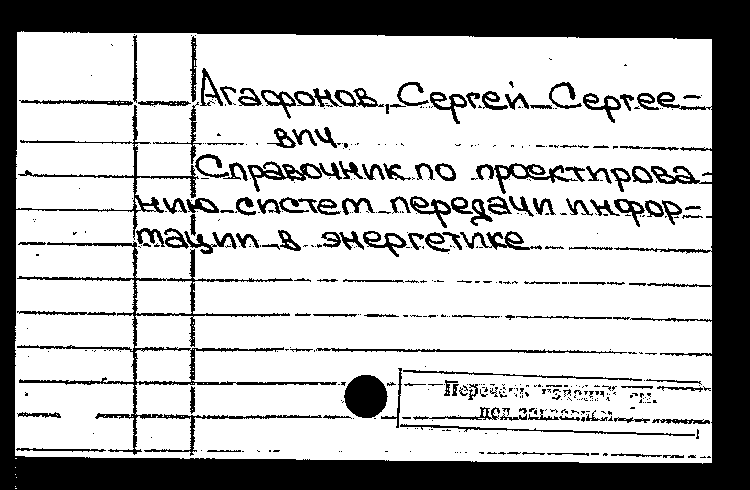 Агафонов, Сергей Сергее-
вич.
Справочник по проектирова-
нию систем передачи инфор-
мации в энергетике
Перечень изданий см.
под заглавием